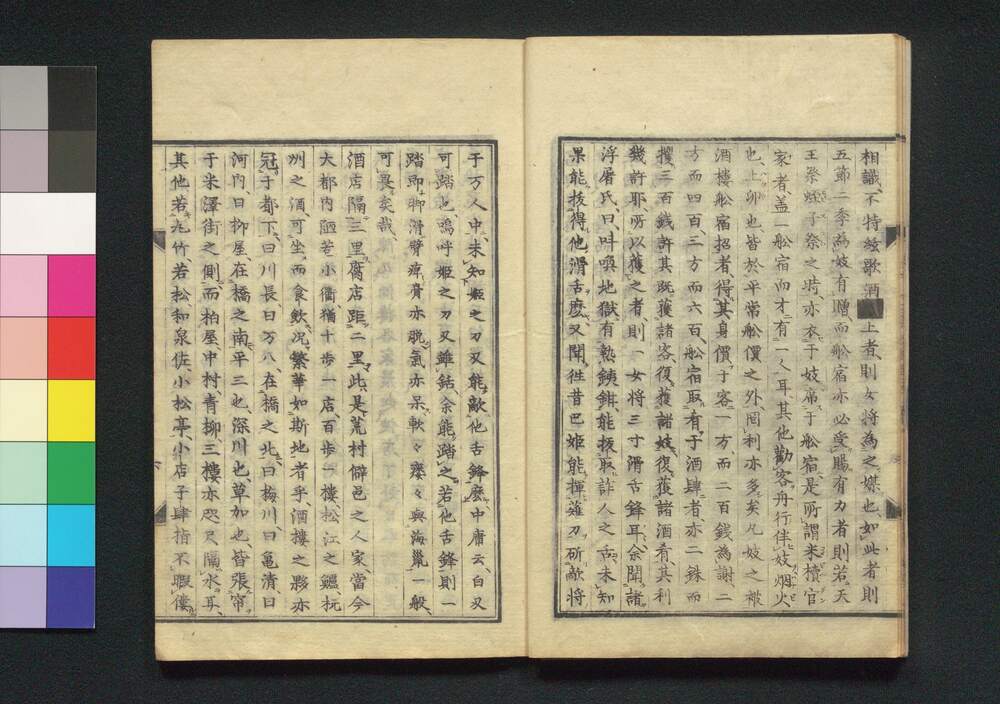 相識、不特絃歌酒■上者、則女將為之媒也、如此者則
五節二季為妓有贈、而舩宿亦必受賜、有力者則若天
王祭蛭子祭之時、亦衣于妓、席于舩宿、是所謂米櫃官
家者、盖一舩宿而才有一人耳、其他勸客舟行伴妓烟火
也、上卯也、皆於平常舩價之外罔利亦多矣、凡妓之被
酒樓舩宿招者、得其身價于客一方、而二百錢為謝二
方而四百、三方而六百、舩宿取肴于酒肆者亦二銖而
攫三百錢許、其既獲諸客、復獲諸妓、復獲諸酒肴、其利
幾許耶、所以獲之者、則一女將三寸滑舌鋒耳、余聞諸
浮屠氏、曰、叫喚地獄有熱鐵鉗、能抜取詐人之舌、未知
果能抜得他滑舌麽、又聞、徃昔巴姬能揮薙刀斫敵將
于万人中、未知姬之刀又能敵他舌鋒麽、中庸云、白刄
可踏也、嗚呼姬之刀刄雖銛、余能踏之、若他舌鋒則一
踏即脚滑臂痺、膏亦脱、氣亦呆、軟々痿々、與海䑕一般、
可畏矣哉、
酒店隔三里、腐店距二里、此是荒村僻邑之人家、當今
大都内陋巷小衢猶十歩一店、百歩一樓、松江之鱸、杭
州之酒、可坐而食飲、况繁華如斯地者乎、酒樓之夥亦
冠于都下、曰川長、曰万八、在橋之北、曰梅川、曰亀清、曰
河内、曰柳屋、在橋之南、平三也、深川也、草加也、皆張帘
于米澤街之側、而柏屋、中村、青柳、三樓亦咫尺隔水耳、
其他若丸竹、若松、和泉、佐、小松亭、小店子肆指不暇僂